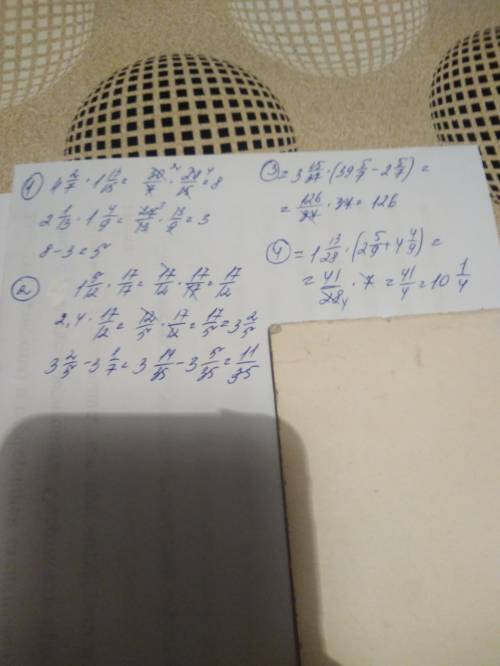 1) 4 2/7 · 1 13/15 = 30/7 · 28/15 = 8
2 1/13 · 1 4/9 = 27/13 · 13/9 = 3
8 - 3 = 5
2) 1 5/12 · 17/17 = 17/12 · 17/17 = 17/12
2,4 · 17/12 = 12/5 · 17/12 = 17/5 = 3 2/5
3 2/5 - 3 1/7 = 3 14/35 - 3 5/35 = 11/35
3) = 3 15/37 · (39 5/7 - 2 5/7) =
= 126/37 · 37 = 126
4) = 1 13/28 · (2 5/9 + 4 4/9) =
= 41/28 4 · 7 = 41/4 = 10 1/4